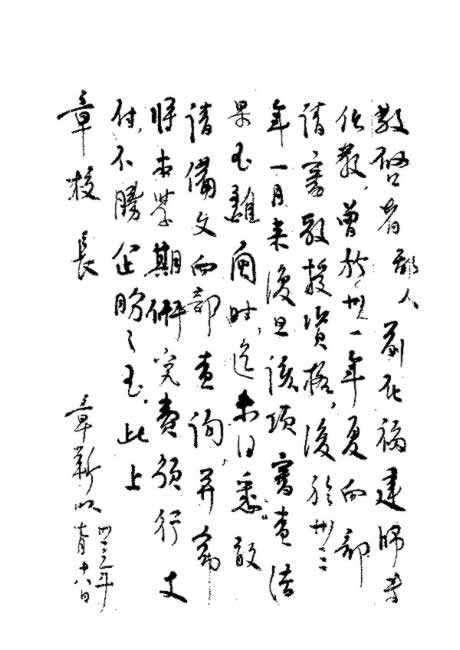 敬啓者鄙人前在福建師專
任教,曾於卅一年夏向部
請審教授資格,後於卅二
年一月来復旦該項審查結
果至離閩時,迄未得悉,敢
請備文向部查詢,并希
將本學期研究費預行支
付,不勝企盼之至,此上
章校長
章靳以
卅三年
月十八日